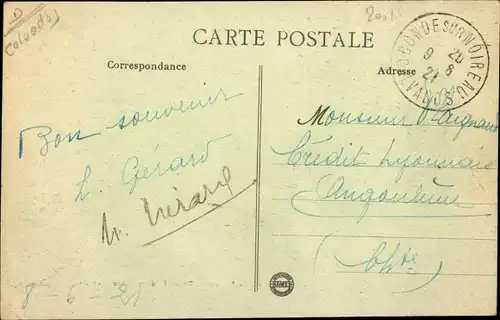 Calvados
CARTE POSTALE
Correspondance
Adresse
CONDE SUR NOIREAU
CALVADOS
9 20
27 8
Monsieur
Bon souvenir
Crédit Lyonnais
L. Gérard
Angoulême
(Chte)
8-9-21